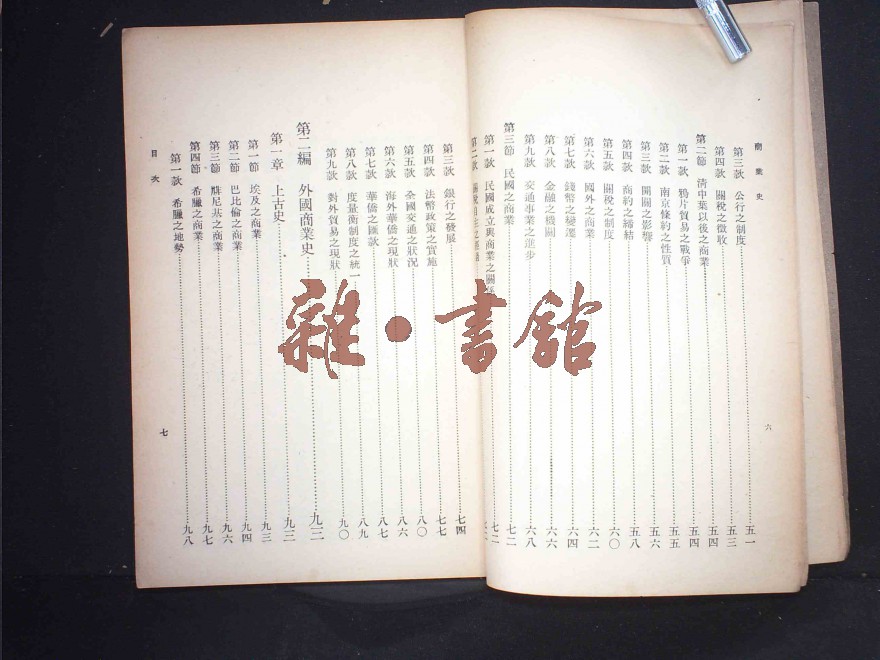 商業史
第三款 公行之制度 五一
第四款 關稅之徵收 五三
第二節 清中葉以後之商業 五四
第一款 鴉片貿易之戰爭 五四
第二款 南京條約之性質 五五
第三款 開關之影響 五六
第四款 商約之締結 五八
第五款 關稅之制度 六〇
第六款 國外之商業 六二
第七款 錢幣之 六四
第八款 金融之機關 六六
第九款 交通事業之進步 六八
第三節 民國之商業 七二
第一款 民國成立與商業之關係 七二
第二款 關稅自主之
六
第三款 銀行之發展 七四
第四款 法幣政策之實施 七七
第五款 全國交通之狀況 八〇
第六款 海外華僑之現狀 八六
第七款 華僑之匯款 八七
第八款 度量衡制度之統一 八九
第九款 對外貿易之現狀 九〇
第二編 外國商業史 九三
第一章 上古史 九三
第一節 埃及之商業 九三
第二節 巴比倫之商業 九四
第三節 腓尼基之商業 九六
第四節 希臘之商業 九七
第一款 希臘之地勢 九八
目次
七
雜·書館